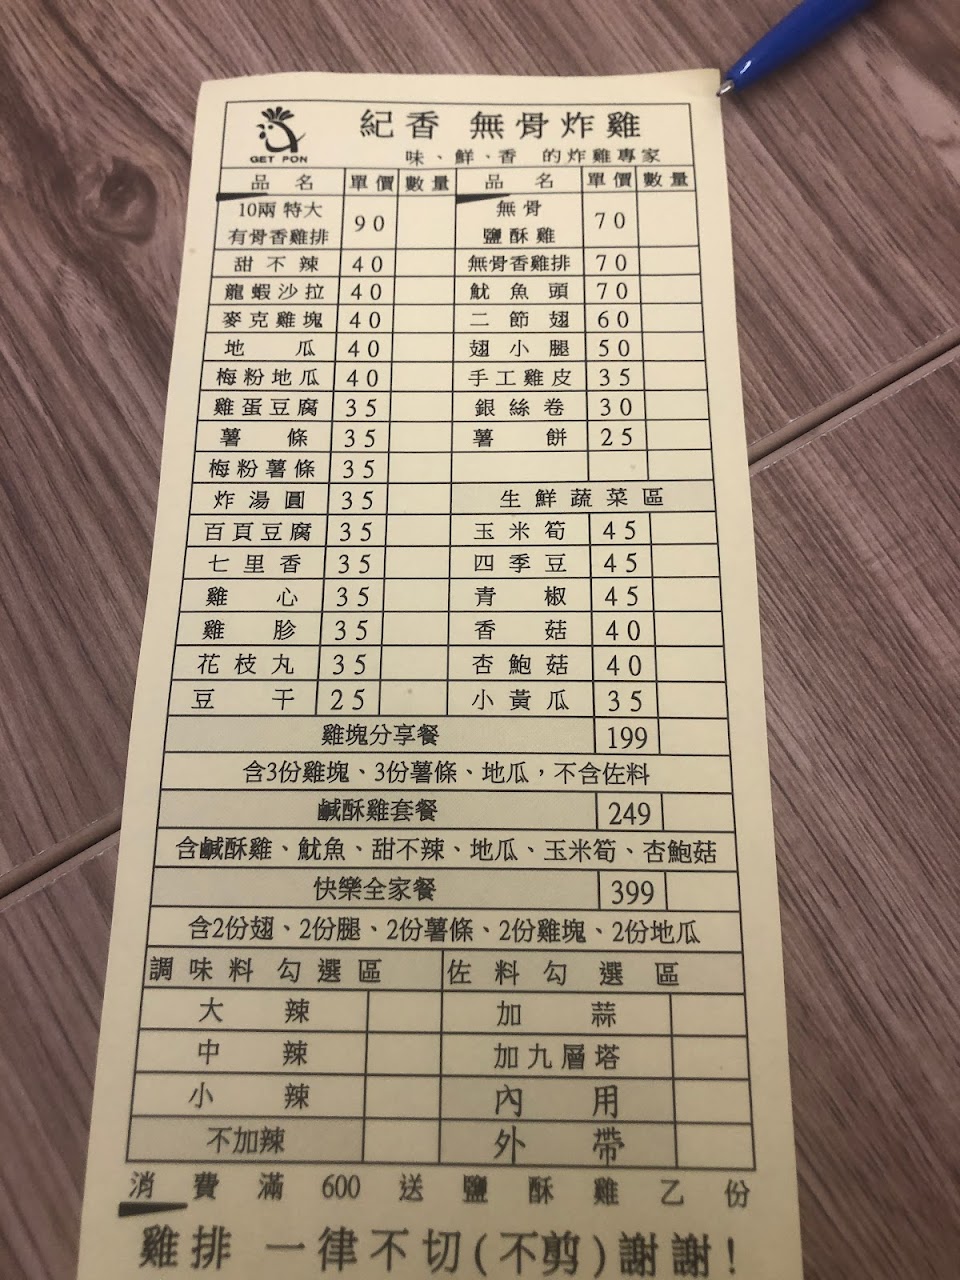 紀香 無骨炸雞
GET PON
味、鮮、香 的炸雞專家
品名 單價 數量 品名 單價 數量
10兩特大 有骨香雞排 90 無骨 鹽酥雞 70
甜不辣 40 無骨香雞排 70
龍蝦沙拉 40 魷魚頭 70
麥克雞塊 40 二節翅 60
地瓜 40 翅小腿 50
梅粉地瓜 40 手工雞皮 35
雞蛋豆腐 35 銀絲卷 30
薯條 35 薯餅 25
梅粉薯條 35
炸湯圓 35 生鮮蔬菜區
百頁豆腐 35 玉米筍 45
七里香 35 四季豆 45
雞心 35 青椒 45
雞胗 35 香菇 40
花枝丸 35 杏鮑菇 40
豆干 25 小黃瓜 35
雞塊分享餐 199
含3份雞塊、3份薯條、地瓜，不含佐料
鹹酥雞套餐 249
含鹹酥雞、魷魚、甜不辣、地瓜、玉米筍、杏鮑菇
快樂全家餐 399
含2份翅、2份腿、2份薯條、2份雞塊、2份地瓜
調味料勾選區 佐料勾選區
大辣 加蒜
中辣 加九層塔
小辣 內用
不加辣 外帶
消費滿600送鹽酥雞乙份
雞排 一律不切(不剪)謝謝!